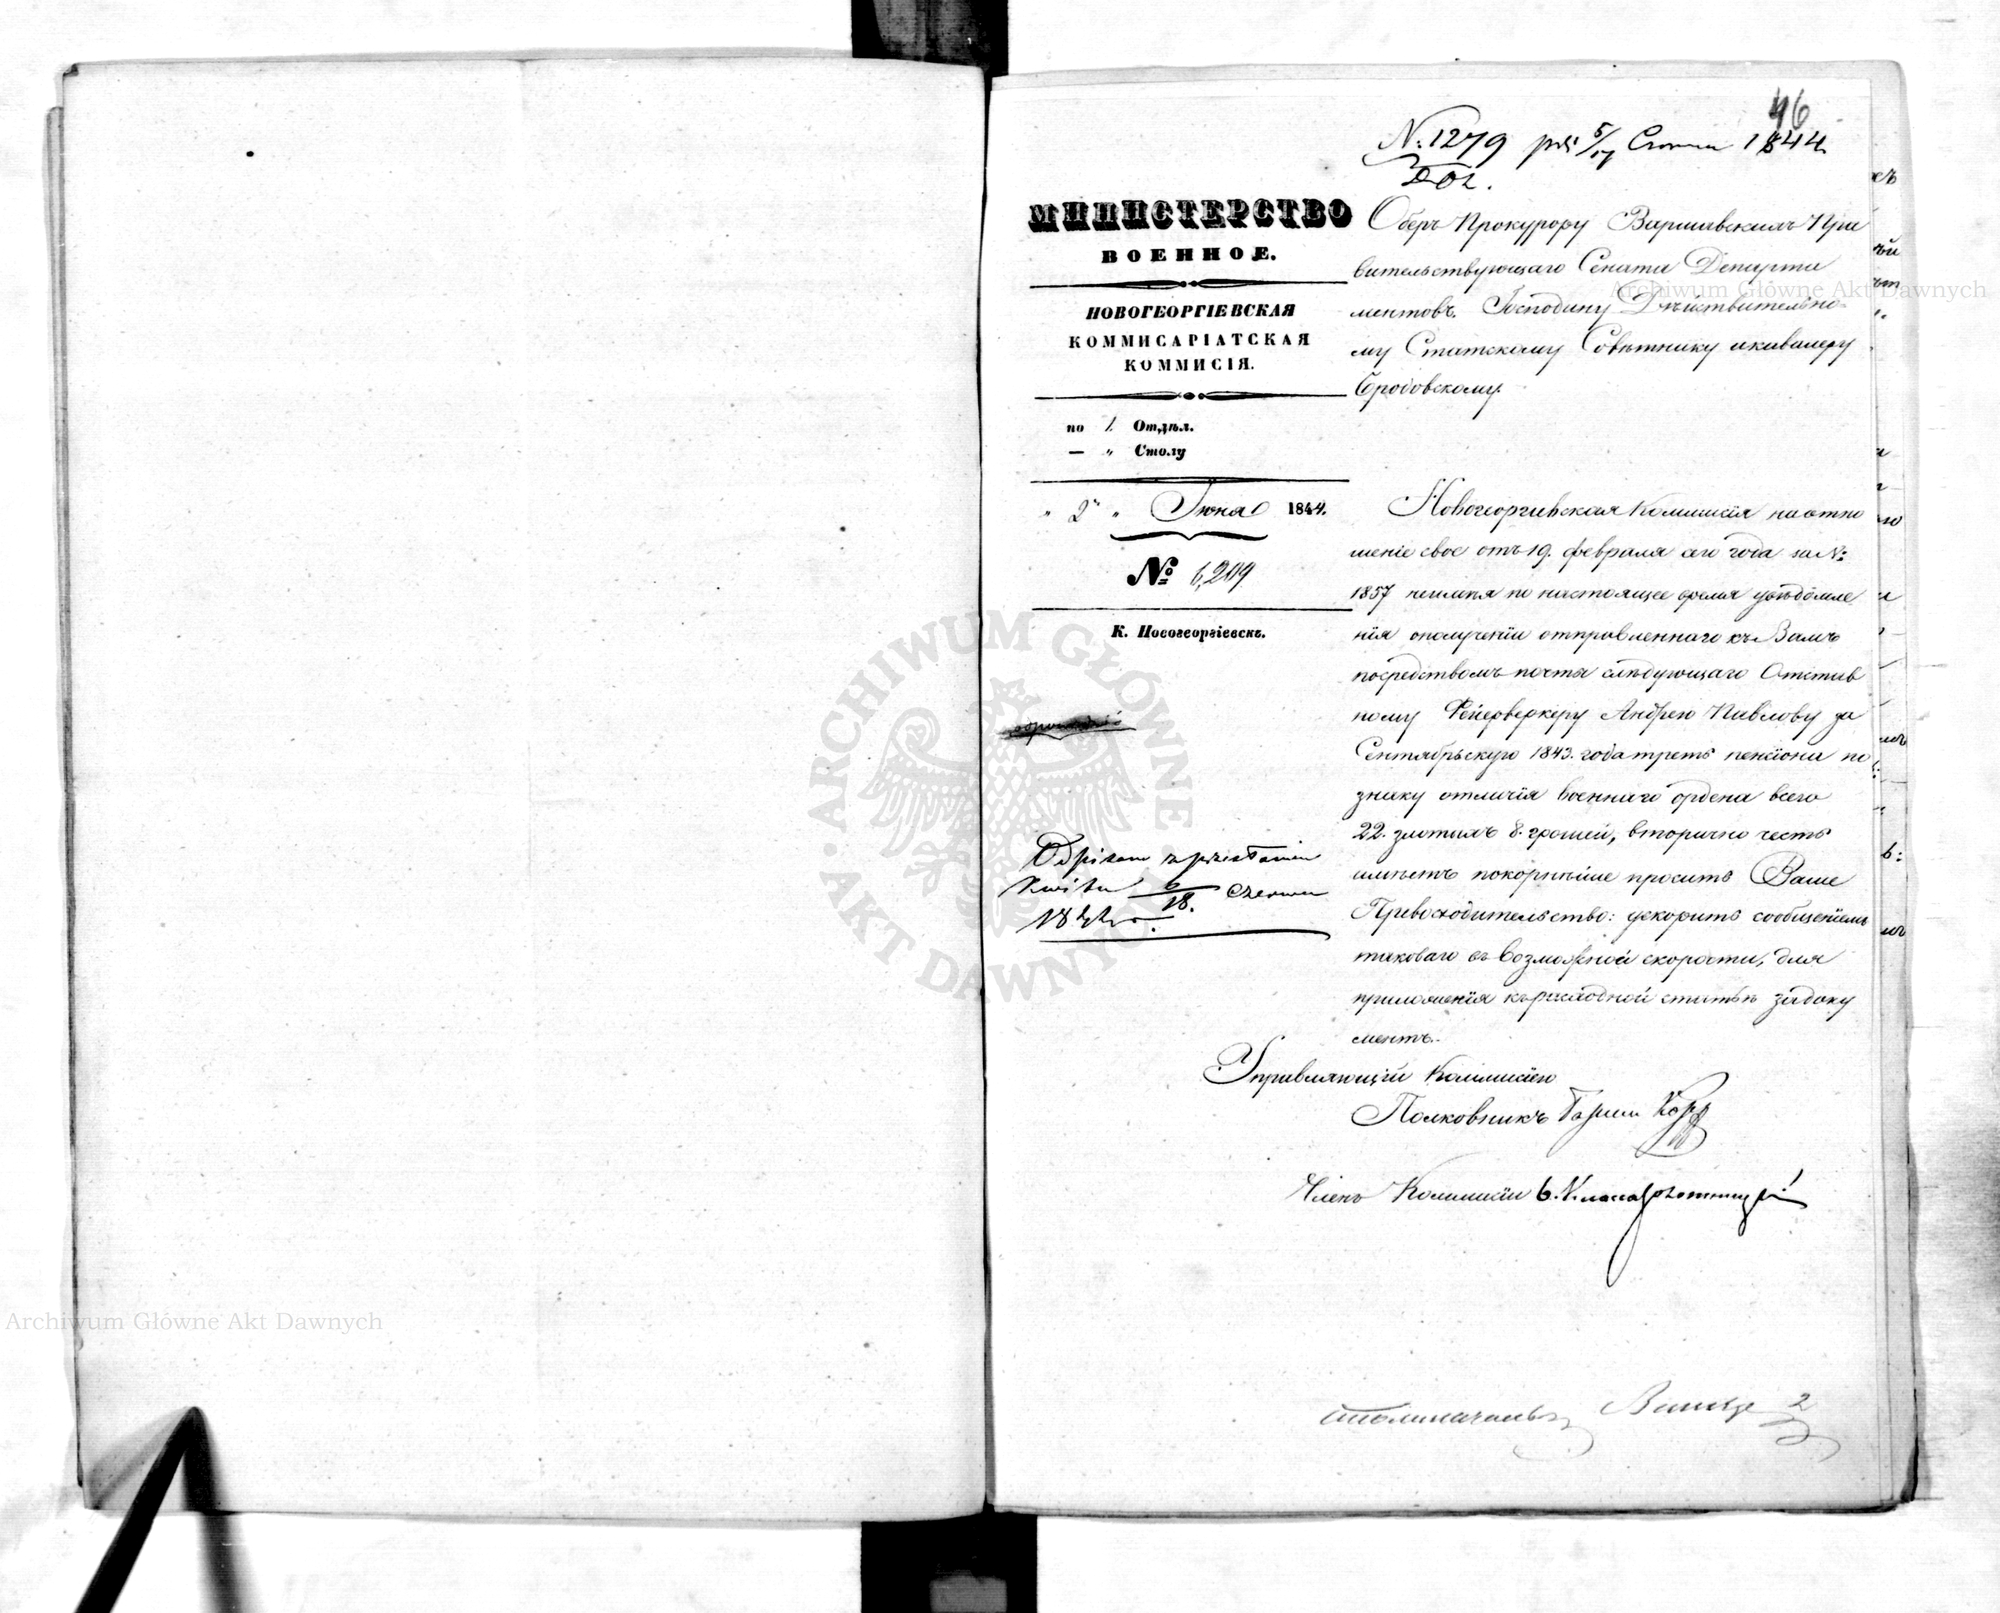 46
N. 1279 5/17 1844.
МИНИСТЕРСТВО
ВОЕННОЕ.
НОВОГЕОРГІЕВСКАЯ
КОММИСАРІАТСКАЯ
КОММИСІЯ.
по 1. Отдѣл.
— „ Столу
„ 2 „ Іюня 1844.
№ 6,209.
К. Новогеоргіевскъ.
Оберъ Прокурору Варшавскихъ Пра
вительствующаго Сената Департа
ментовъ, Господину Дѣйствительно-
му Статскому Совѣтнику икавалеру
Бродовскому.
Новогеоргиевская Коммисія наотно
шеніе свое отъ 19. февраля сего года за №:
1857 неимѣя по настоящее время увѣдомле
нія ополученіи отправленнаго къ Вамъ
посредствомъ почты слѣдующаго Отстав
ному Фейерверкеру Андрею Павлову за
Сентябрьскую 1843. года треть пенсіона по
знаку отличія военнаго ордена всего
22. злотыхъ 8. грошей, вторично честь
имѣетъ покорнѣйше просить Ваше
Превосходительство: ускорить сообщеніемъ
таковаго въ возможной скорости, для
приложенія красходной статьѣ задоку
ментъ.
Управляющій Коммисіею
Полковникъ Баронъ Корфъ
Членъ Коммисіи 6. Класса
Odpisano z przesłaniem
Kwitu 6/18. Czerwca
1844.
Столоначальникъ
Archiwum Główne Akt Dawnych
Archiwum Główne Akt Dawnych
ARCHIWUM GŁÓWNE AKT DAWNYCH